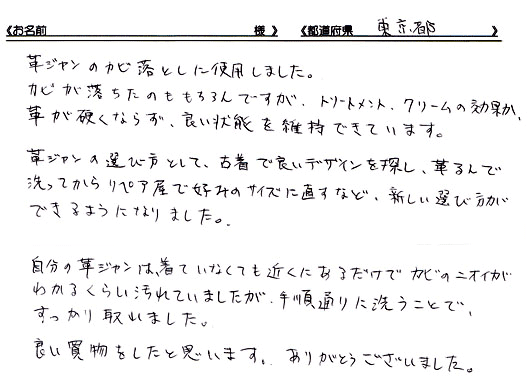 《お名前 様》 《都道府県 東京都 》
革ジャンのカビ落としに使用しました。
カビが落ちたのももちろんですが、トリートメント、クリームの効果か、
革が硬くならず、良い状態を維持できています。
革ジャンの選び方として、古着で良いデザインを探し、革るんで
洗ってからリペア屋で好みのサイズに直すなど、新しい選び方が
できるようになりました。
自分の革ジャンは、着ていなくても近くにあるだけでカビのニオイが
わかるくらい汚れていましたが、手順通りに洗うことで、
すっかり取れました。
良い買物をしたと思います。ありがとうございました。